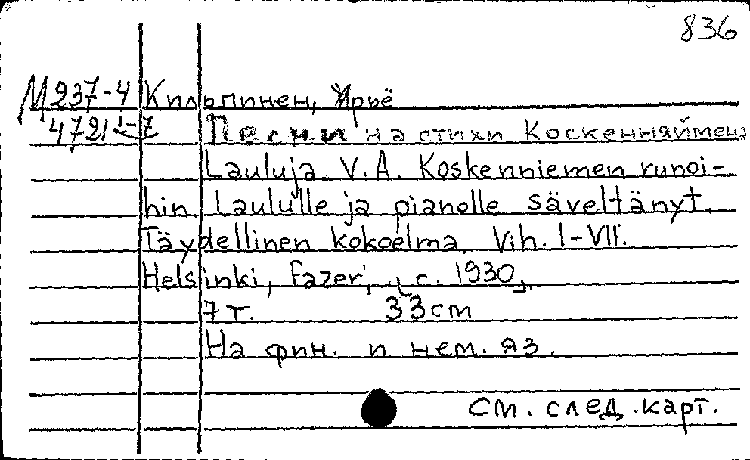 836
М237-4 Кильпинен, Ярьё
4721 1-7 Песни на стихи Коскенняймен:
Lauluja V. A. Koskenniemen runoi-
hin. Laululle ja pianolle säveltänyt.
Täydellinen kokoelma. Vih. I-VII.
Helsinki, Fazer, [c. 1930].
7 т. 33 cm
На фин. и нем. яз.
См. след. карт.